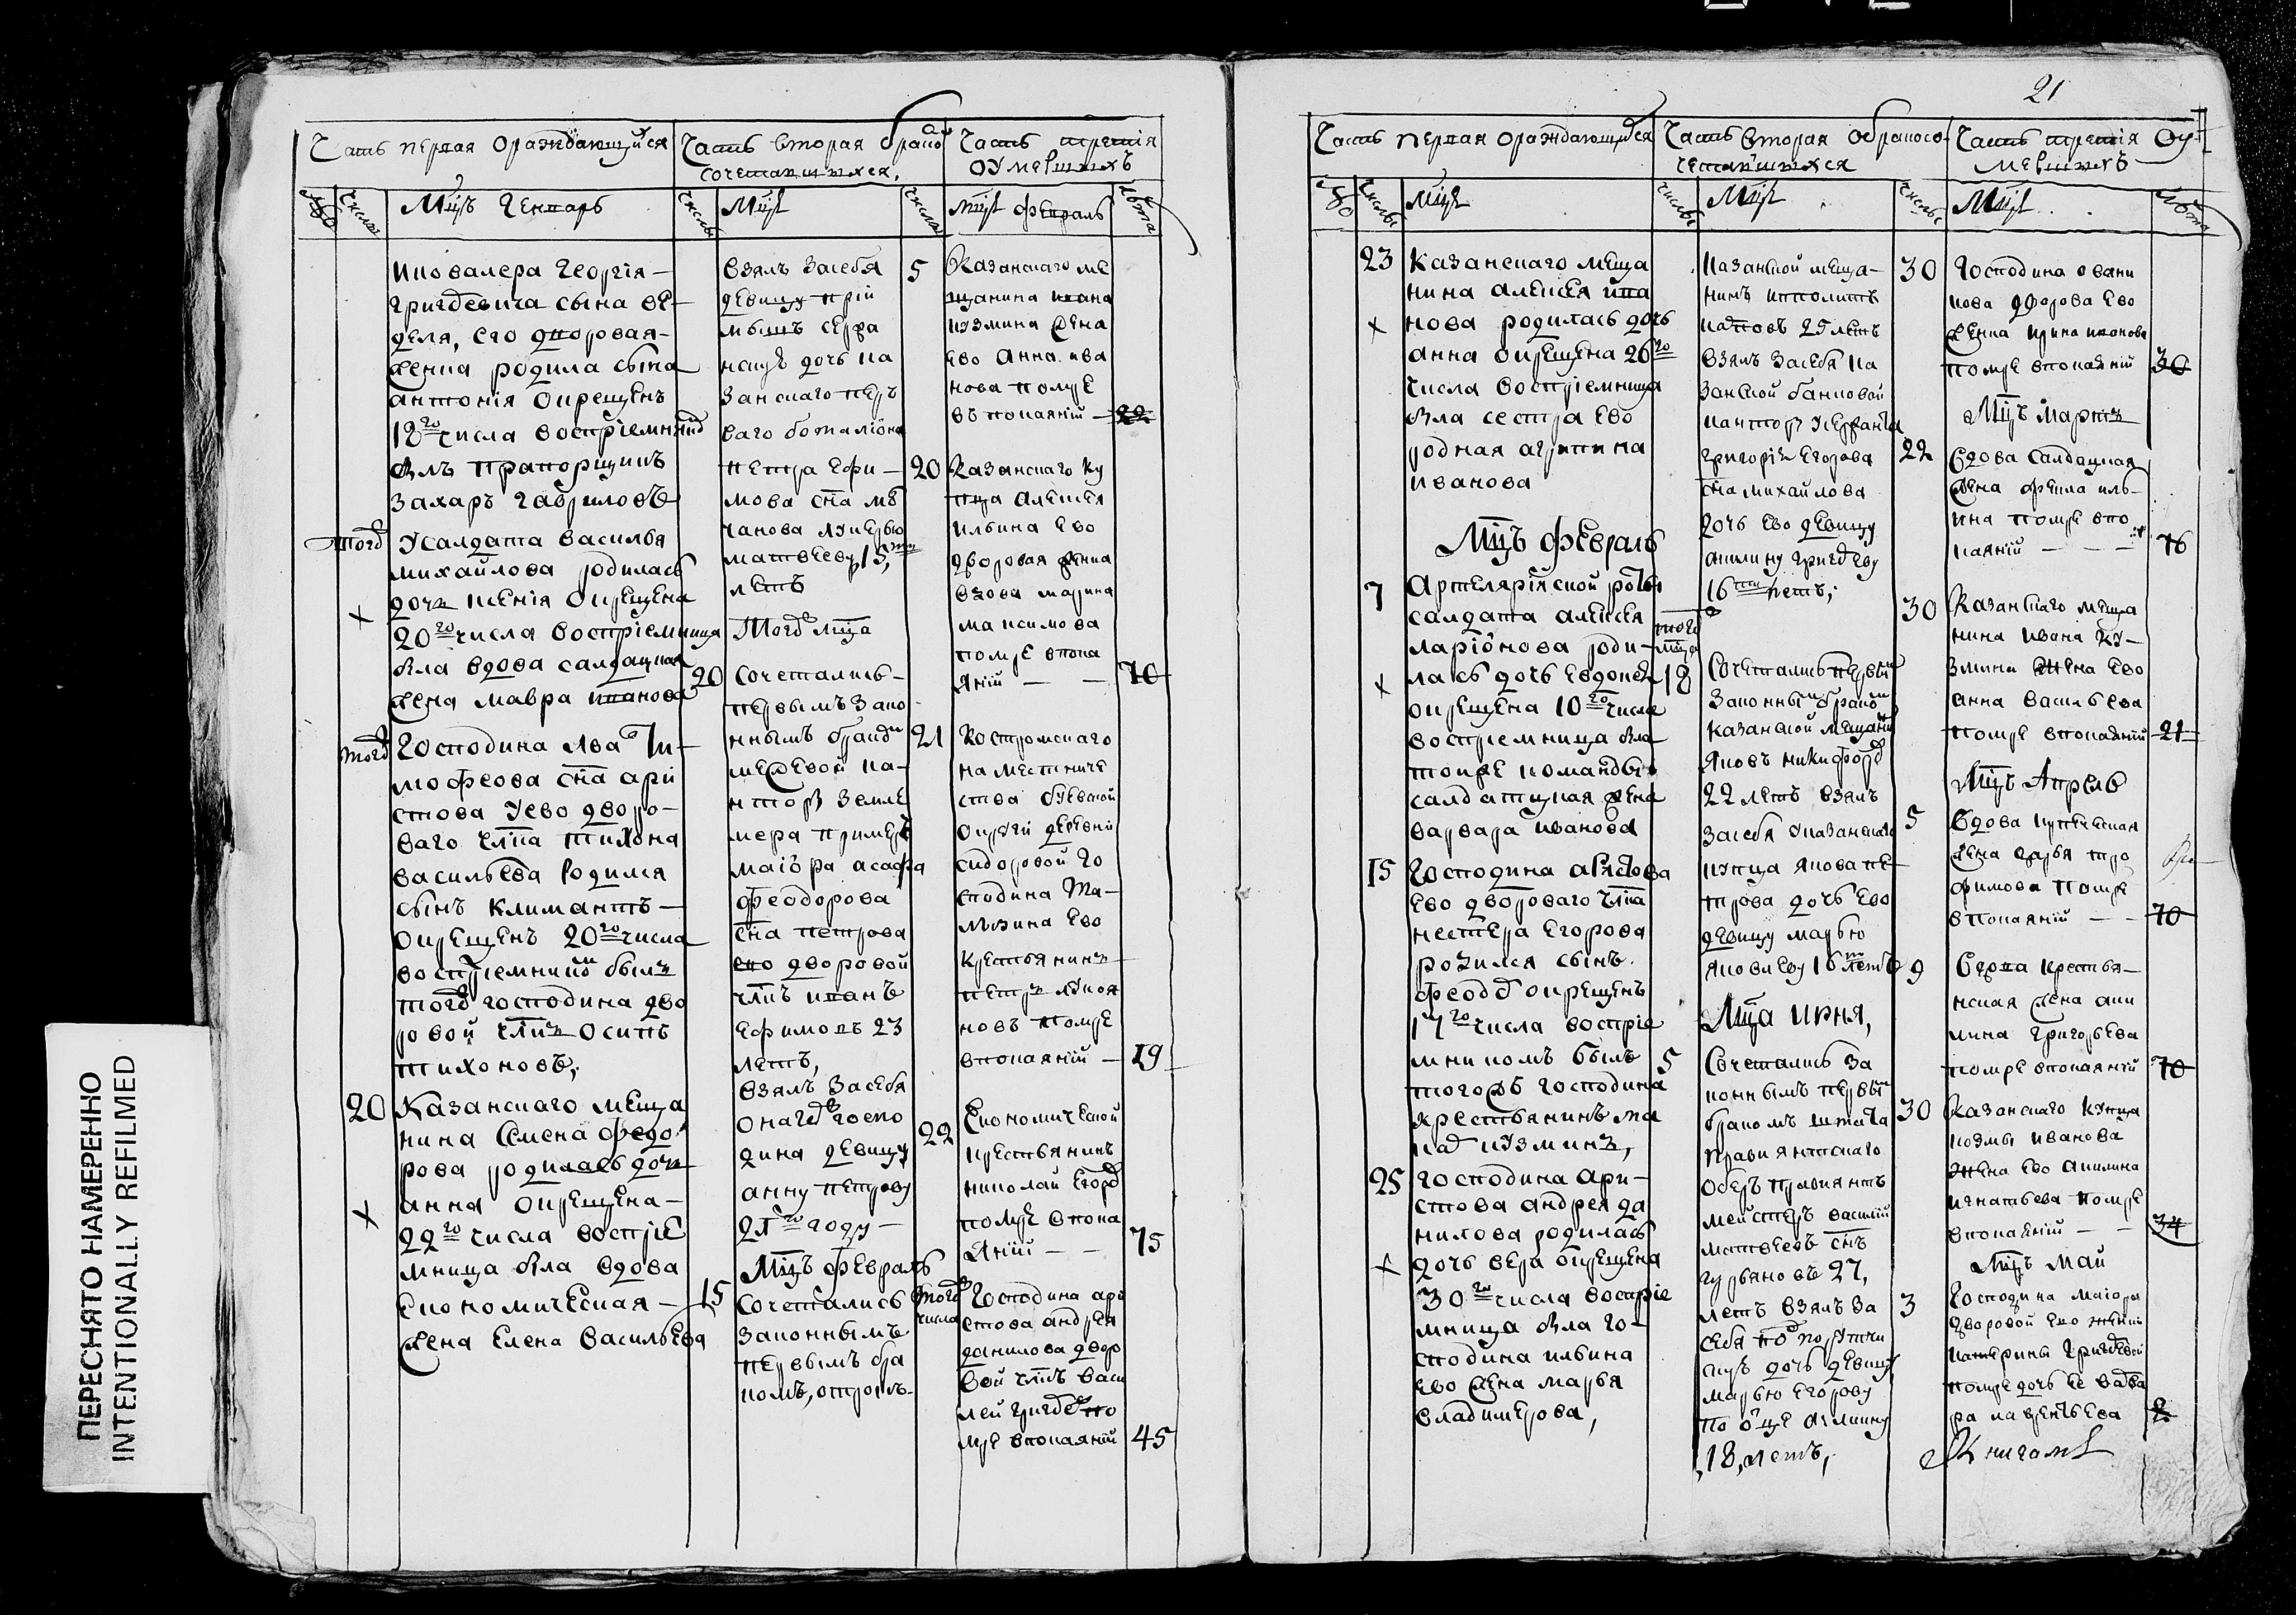 21
Часть первая ораждающийся
Часть вторая обрако
сочетавшихся,
Часть третія
оумершихъ
Числы
Мцъ Генварь
Числы
Мцы
Числы
Мцы февраль
Лѣта
кповалера Георгія
григорьевича сына ве
деля, его дворовая
жена родила сына
антонія окрещенъ
18го числа воспріемникъ
былъ прапорщикъ
Захаръ гавриловъ
тогожъ
У салдата василья
михайлова родилась
дочь ксенія окрещена
20го числа воспріемница
была вдова салдацкая
жена мавра иванова
тогожъ
Господина лва ти
мофеова сна ари
стова у ево дворо
ваго члка тихона
васильева родился
сынъ климантъ
окрещенъ 20го числа
воспріемникомъ былъ
тогожъ господина дво
ровой члкъ осипъ
тихоновъ,
20 Казанскаго меща
нина Семена федо
рова родилась дочь
анна окрещена
22го числа воспріе
мница была вдова
економическая
жена елена васильева
взялъ засебя
девицу прій
мышъ сержа
нску дочь ка
занскаго пер
ваго баталіона
петра ефи
мова сна мѣ
чанова лукерью
матвееву, 15,ти
летъ
Тогожъ мца
20 Сочетались
первымъ зако
ннымъ бракомъ
межевой ка
нторы земле
мера примеръ
маіора асафа
феодорова
сна петрова
ево дворовой
члкъ иванъ
ефимовъ 23
летъ,
взялъ засебя
онагожъ госпо
дина девицу
анну петрову
21го году
Мцъ февраль
15 Сочетались
законнымъ
первымъ бра
комъ, отроль
5 Казанскаго ме
щанина ивана
кузмина жена
ево анна ива
нова помре
въ покаяній 22
20 Казанскаго ку
пца алексея
ильина ево
дворовая женка
вдова марина
максимова
помре впока
яній 70
21 Костромскаго
наместниче
ства буевской
округи деревни
сидоровой го
сподина
ево
крестьянинъ
петръ
новъ помре
впокаяній 19
22 Економической
крестьянинъ
николай егоровъ
помре впока
яній 75
тогожъ числа
Господина ари
стова андрея
данилова дворо
вой члкъ васи
лей григорьевъ по
мре впокаяній 45
Часть первая ораждающийся
Часть вторая обракосо
четавшихся
Часть третія оу
мершихъ
Числы
Мцы
Числы
Мцы
Числы
Мцы
Лѣта
23 Казанскаго меща
нина алексея ива
нова родилась дочь
анна окрещена 26го
числа воспріемница
была сестра ево
родная агрипина
иванова
Мцъ февраль
7 Артеляріиской роты
салдата алексея
ларіонова роди
лась дочь евдокея
окрещена 10го числа
воспріемница была
тоиже команды
салдатцкая жена
варвара иванова
15 Господина аристова
ево двороваго члка
нестера егорова
родился сынъ
феодоръ окрещенъ
17го числа воспріе
мникомъ былъ
тогожъ господина
крестьянинъ ма
каръ кузминъ,
25 Господина ари
стова андрея да
нилова родилась
дочь вера окрещена
30го числа воспріе
мница была го
сподина ильина
ево жена марья
владимерова,
казанской меща
нинъ ипполитъ
катовъ 25 летъ
взялъ засебя ка
занской банковой
канторы сержанта
григорія егорова
сна михайлова
дочь ево девицу
акилину григорьеву
16ти летъ,
тогожъ мца
18 Сочетались первымъ
законнымъ бракомъ
казанской мещанинъ
яковъ никифоровъ
22 летъ взялъ
засебя казанскаго
купца якова пе
трова дочь ево
девицу марью
яковлеву 16ти летъ
Мца июня,
5 Сочетались за
коннымъ первымъ
бракомъ штата
правиянтскаго
оберъ правиянтъ
мейстеръ василій
матвеевъ снъ
гурьяновъ 27,
летъ взялъ за
себя
дочь девицу
марью егорову
по отце акилину
,18, летъ,
30 Господина овани
кова дворова ево
женка ирина иванова
помре впокаяній 30
Мцъ мартъ
22 Вдова салдацкая
жена фекла иль
ина помре впо
каяній 76
30 Казанскаго меща
нина ивана ку
змина жена ево
анна васильева
помре впокаяній 21
Мцъ Апрель
5 Вдова купеческая
жена дарья тро
фимова помре
впокаяній 70
9 Вдова крестья
нская жена аки
лина григорьева
помре впокаяній 70
30 Казанскаго купца
козмы иванова
жена ево акилина
игнатьева помре
впокаяній 34
Мцъ май
3 Господина маіора
дворовой ево женки
катерины григорьевой
помре дочь ее варва
ра лаврентьева 2
Книгамъ
ПЕРЕСНЯТО НАМЕРЕННО
INTENTIONALLY REFILMED